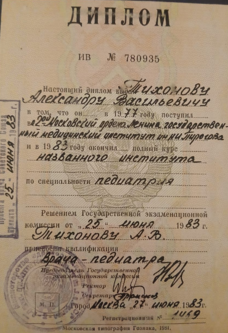 ДИПЛОМ
ИВ № 780935
Настоящий диплом выдан Тихонову
Александру Васильевичу
в том, что он в 1977 году поступил
во 2й Московский ордена Ленина государствен-
ный медицинский институт им. Н.И. Пирогова
и в 1983 году окончил полный курс
названного института
по специальности педиатрия
Решением Государственной экзаменационной
комиссии от „25" июня 1983 г.
Тихонову А.В.
присвоена квалификация
Врача-педиатра
Председатель Государственной
экзаменационной комиссии
Ректор
Секретарь
М. П.
Москва 27 июня 1983 г.
Регистрационный №
Московская типография Гознака.